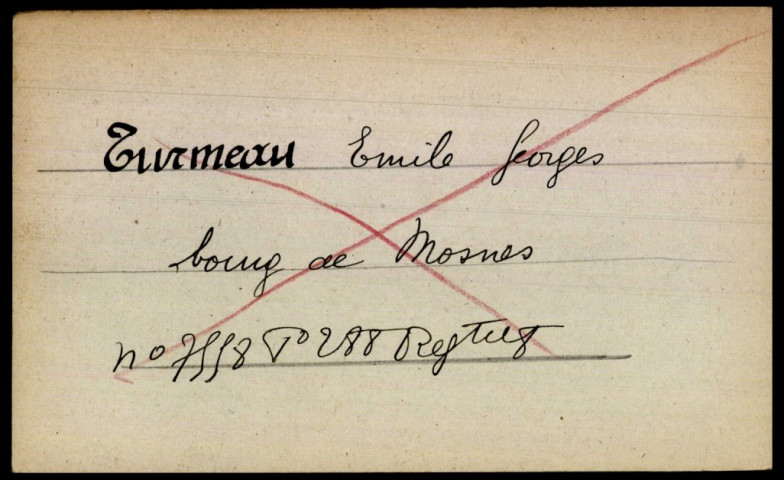 Turmeau Emile Georges
bourg de Mosnes
no 7558 Fo 288 Reg